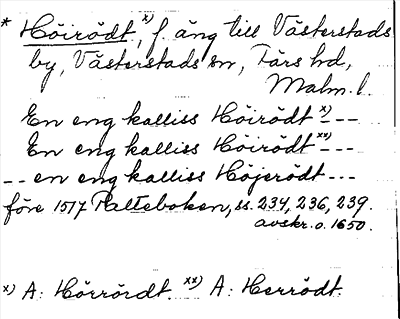 * Höirödt, x) f. äng till Västerstads
by, Västerstads sn, Färs hd,
Malm. l.
En eng kalliss Höirödt x) ---
En eng kalliss Höirödt xx) ---
-- en eng kalliss Höjerödt ---
före 1517 Palteboken, ss. 234, 236, 239.
avskr. o. 1650.
x) A: Hörrördt. xx) A: Herrödt.